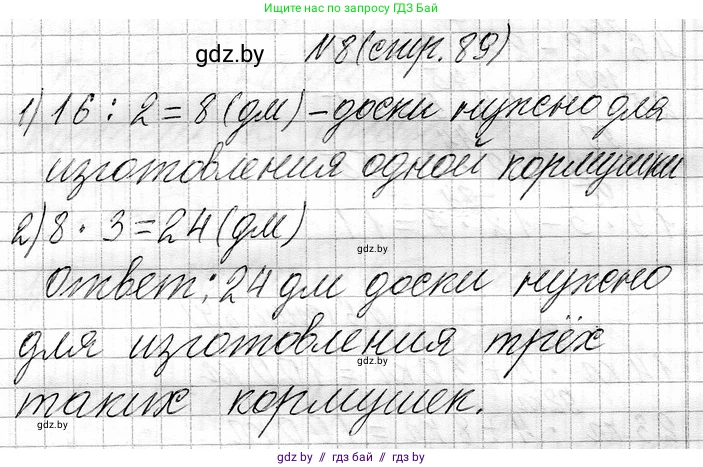 Ищите нас по запросу ГДЗ Бай
gdz.by
№8(стр. 89)
1) 16 : 2 = 8 (дм) – доски нужно для
изготовления одной кормушки
2) 8 · 3 = 24 (дм)
gdz.by
Ответ: 24 дм доски нужно
для изготовления трёх
gdz.by
таких кормушек.
gdz.by
gdz.by // гдз бай // gdz.by